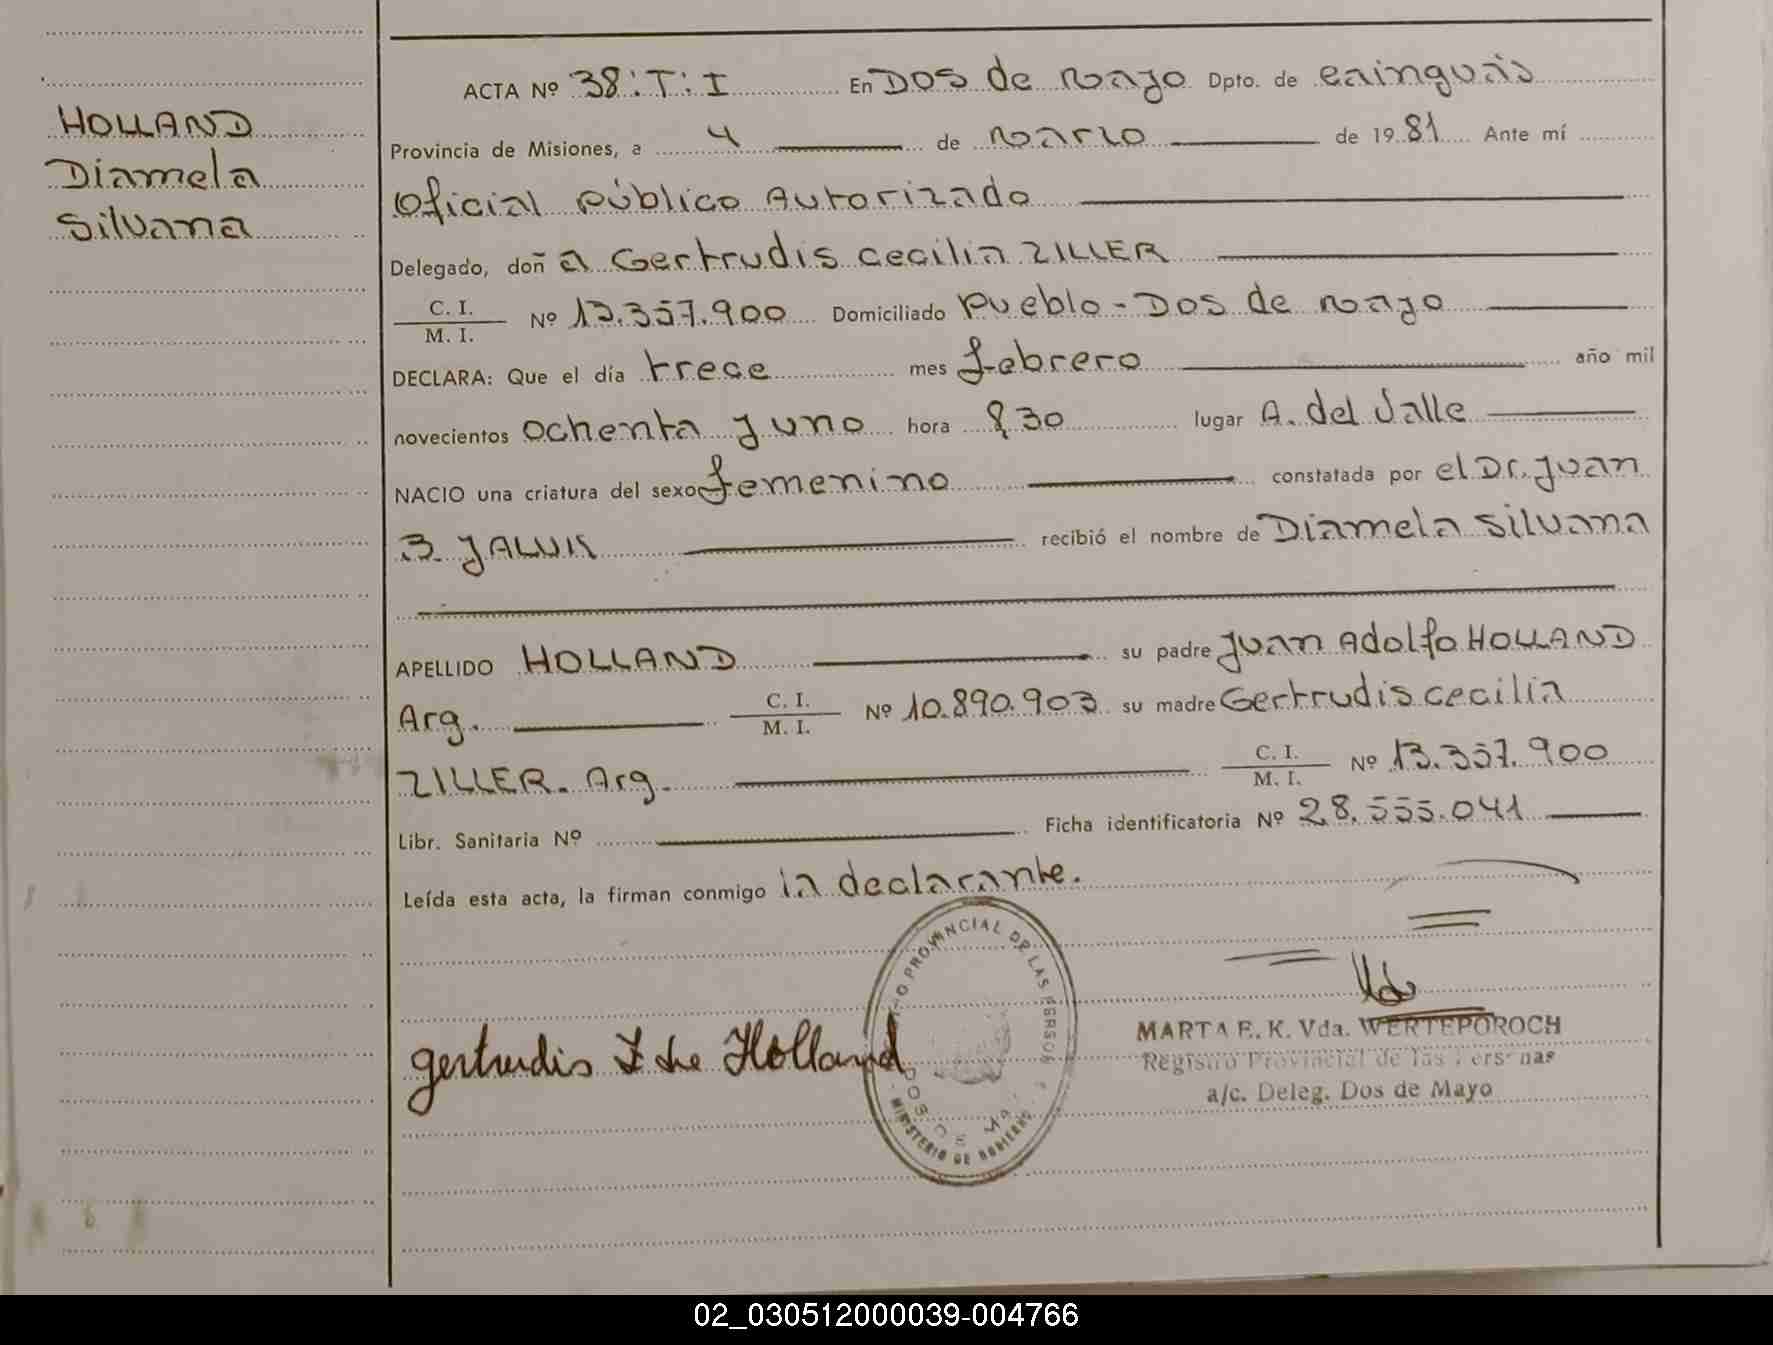 HOLLAND
Diamela
Silvana
ACTA Nº 38:T:I En DOS de Mayo Dpto. de Cainguás
Provincia de Misiones, a 4 de Marzo de 1981 Ante mí
Oficial Público Autorizado
Delegado, doña Gertrudis Cecilia ZILLER
C. I. / M. I. Nº 13.357.900 Domiciliado Pueblo - DOS de Mayo
DECLARA: Que el día trece mes febrero año mil
novecientos ochenta y uno hora 8,30 lugar A. del Valle
NACIO una criatura del sexo femenino constatada por el Dr. Juan
recibió el nombre de Diamela Silvana
APELLIDO HOLLAND su padre Juan Adolfo HOLLAND
Arg. C. I. / M. I. Nº 10.890.903 su madre Gertrudis Cecilia
ZILLER. Arg. C. I. / M. I. Nº 13.357.900
Libr. Sanitaria Nº Ficha identificatoria Nº 28.555.041
Leída esta acta, la firman conmigo la declarante.
Gertrudis Z de Holland
PROVINCIAL DE LAS PERSO
MINISTERIO DE GOBIERNO
MARTA E. K. Vda. WERTEPOROCH
Registro Provincial de las Personas
a/c. Deleg. Dos de Mayo
02_030512000039-004766